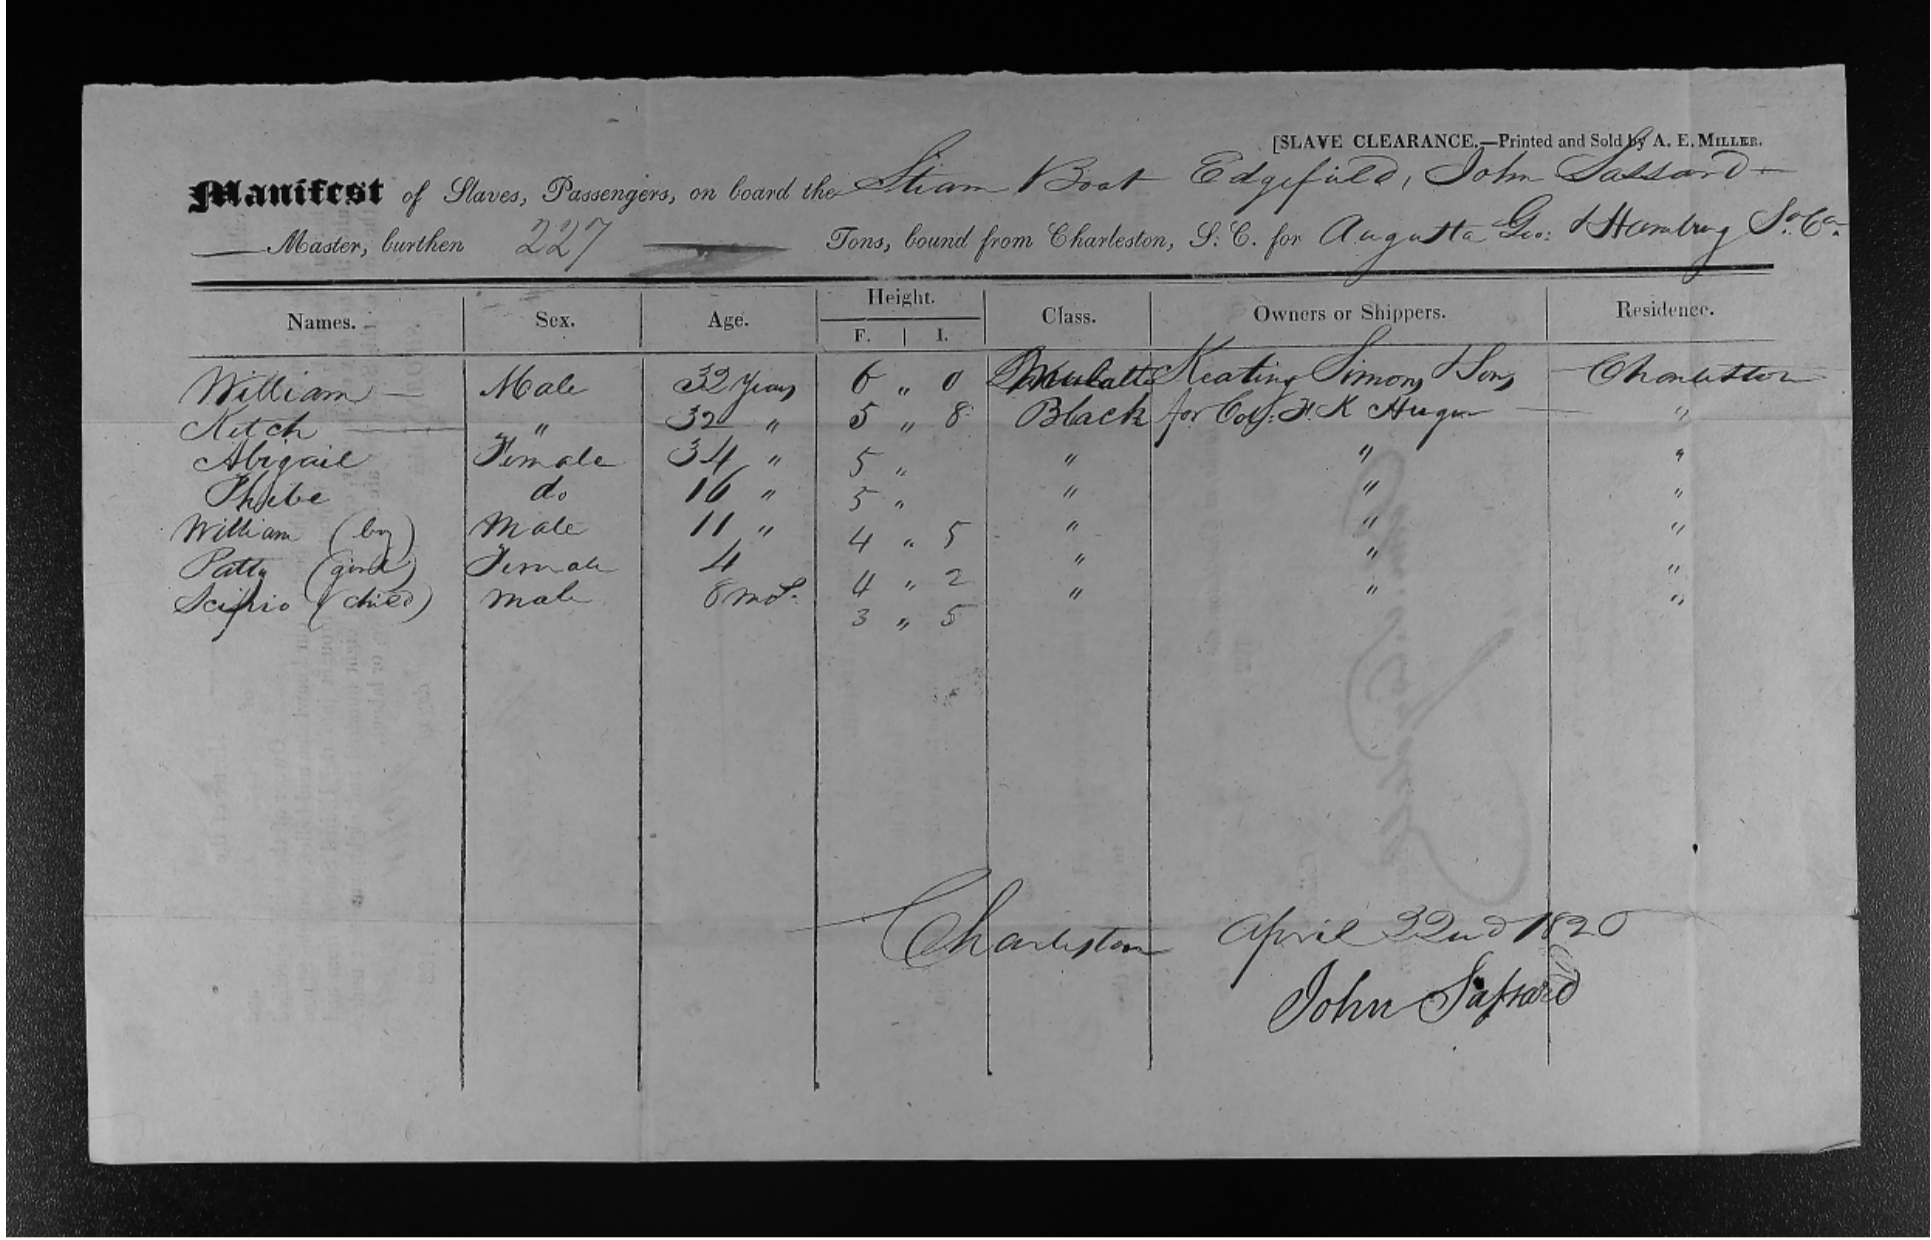 [SLAVE CLEARANCE.—Printed and Sold by A. E. MILLER.
Manifest of Slaves, Passengers, on board the Steam Boat Edgefield, John Lassard —
— Master, burthen 227 — Tons, bound from Charleston, S. C. for Augusta Geo: & Hamburg So. Ca.
Names. Sex. Age. Height. Class. Owners or Shippers. Residence.
F. | I.
William — Male 32 Years 6 " 0 Mulatto Keating Simons & Sons Charleston
Ketch — " 32 " 5 " 8 Black for Col. F K Huger — "
Abigail Female 34 " 5 " " " "
Phebe do 16 " 5 " " " "
William (boy) Male 11 " 4 " 5 " " "
Patty (girl) Female 4 4 " 2 " " "
Scipio (child) male 8 mos. 3 " 5 " " "
Charleston April 22nd 1820
John Lassard